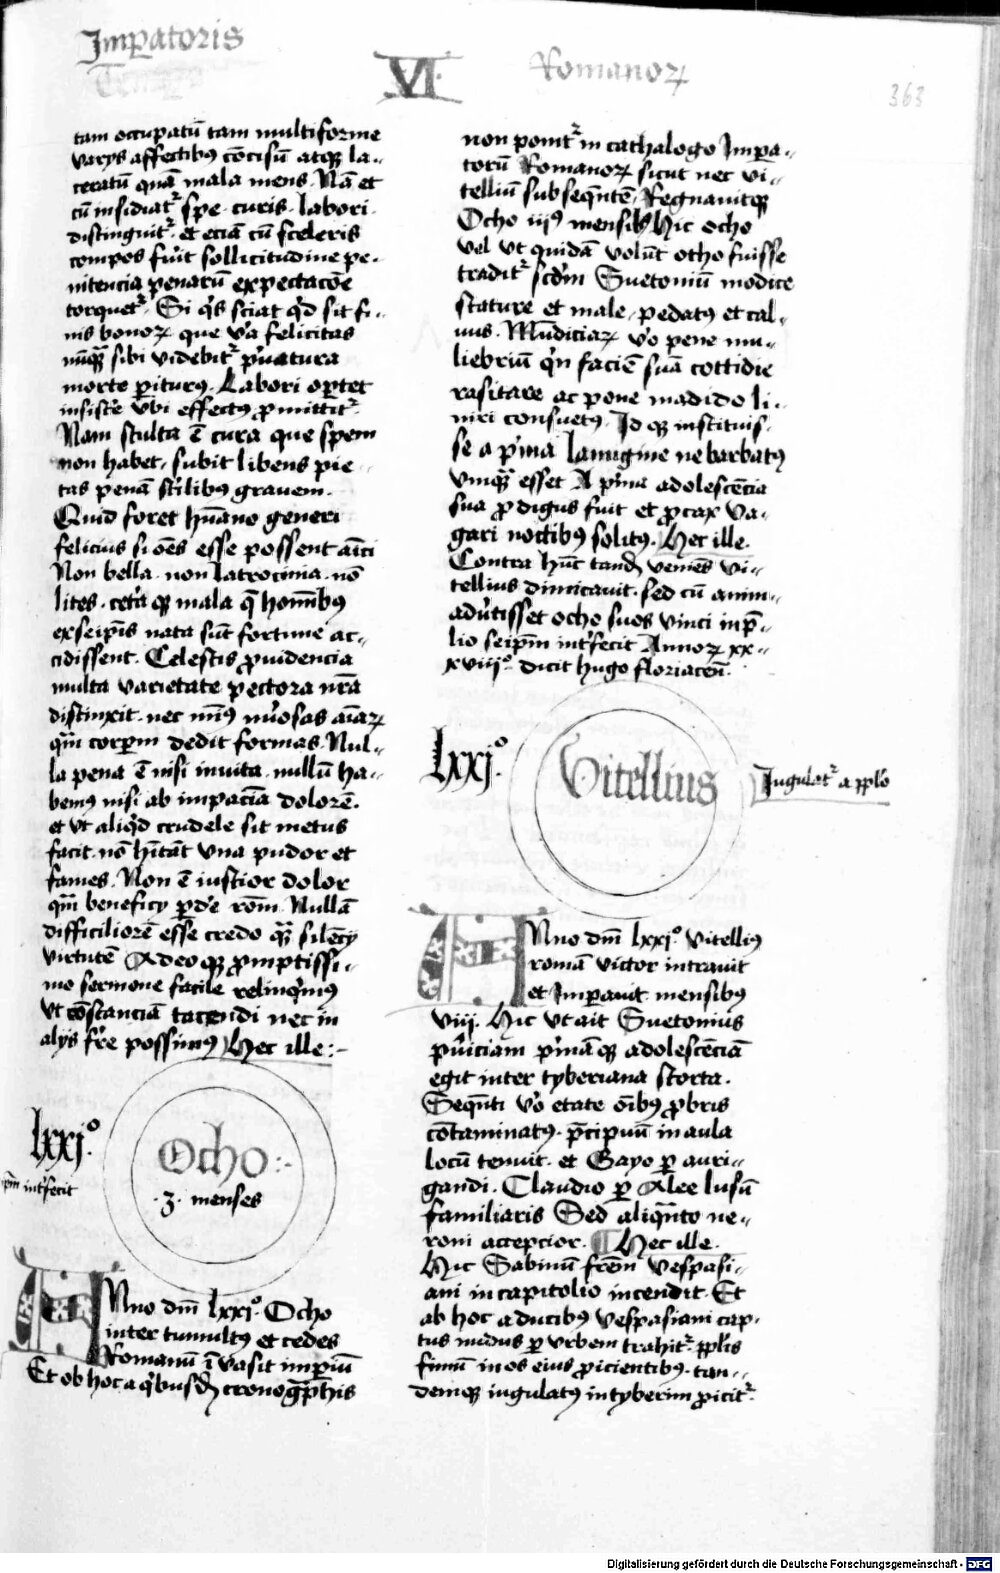 Imꝑatoris
VI
Romanoꝝ
363
tam occupatū tam multiforme
varys affectibꝰ cōcisū atqꝫ la-
ceratū quā mala mens. Nā et
cū insidiatᷣ spe. curis. labori
distinguitᷣ. et eciā cū sceleris
compos fuit sollicitudine pe-
nitencia penarū expectacōe
torquetᷣ. Si qͥs sciat qͥd sit fi-
nis bonoꝝ que va felicitas
nūqꝫ sibi videbitᷣ pͥuatura
morte ꝑiturꝰ. Labori oꝑtet
insistͤe vbi effectꝰ ꝓmittitᷣ
Nam stulta ē cura que spem
non habet. subit libens pie
tas penā stͥlibꝰ grauem.
Quid foret hūano generi
felicius si oēs esse possent aīci
Non bella. non latrocinia. nō
lites. cetͣa qꝫ mala q̄ homībꝰ
ex seipīs nata sūt fortune ac-
cidissent. Celestis ꝓuidencia
multa varietate pectora nrā
distinxit. nec minꝰ nūosas aīaꝝ
qm̄ corꝑm dedit formas. Nul-
la pena ē nisi inuita. nullū ha-
bemꝰ nisi ab impaciā dolorē.
et vt aliqͥd crudele sit metus
facit. nō hītāt vna pudor et
fames. Non ē iustior dolor
qm̄ beneficy ꝑdͤe rōm. Nullā
difficiliorē esse credo qꝫ silēcy
virtutē Adeo qꝫ ꝓmptissi-
mo sermone facile relinqͥmꝰ
vt cōstanciā tacendi nec in
alijs fͤre possimꝰ Hec ille:-
lxxjº.
Ocho:-
.3. menses
ꝑm intͤfecit
Anno dm̄ lxxjº. Ocho
inter tumultꝰ et cedes
Romanū īvasit imꝑiū
Et ob hoc a qͥbusdā cronogͣphis
non ponitᷣ in cathalogo Imꝑa-
torū Romanoꝝ sicut nec vi-
telliū subseqͣntē. Regnauitqꝫ
Ocho iijꝰ mensibꝰ Hic ocho
vel vt quidā volūt otho fuisse
traditᷣ scd̄m Suetoniū modice
stature et male. pedatꝰ et cal-
uus. Mūdiciaꝝ vͦo pene mu-
liebriū qͥn faciē suā cottidie
rasitare ac pone madido li-
niri consuetꝰ. Id qꝫ instituis-
se a pͥma lanugine ne barbatꝰ
vnqꝫ esset A pͥma adolescēcia
sua ꝓdigus fuit et ꝓcax va-
gari noctibꝰ solitꝰ. Hec ille.
Contra hūc tandē veniēs vi-
tellius dimicauit. sed cū anim-
adͤutisset ocho suos vinci in p̄-
lio seipm̄ intͤfecit Annoꝝ xx-
xviijº. dicit hugo floriacen̄.
lxxjº.
Vitellius
Jugulatᷣ a ppl̄o
Anno dm̄ lxxjº. Vitellius
romā victor intrauit
et Imꝑauit mensibꝰ
viij. Hic vt ait Suetonius
pͧiciam pͥmā qꝫ adolescēciā
egit inter tyberiana storta.
Seqͣnti vͦo etate oībꝰ ꝓbris
cōtaminatꝰ. p̄cipuū in aula
locū tenuit. et Gayo ꝑ auri-
gandi. Claudio ꝑ Alee lusū
familiaris Sed aliqͣnto ne-
roni accepcior. Hec ille.
Hic Sabinū frēm vespasi-
ani in capitolio incendit. Et
ab hoc a ducibꝰ vespasiani cap-
tus nudus ꝑ vrbem trahitᷣ. ppl̄is
fimū in os eius ꝓicientibꝰ. tan-
demqꝫ iugulatꝰ in tyberim ꝓicitᷣ.
Digitalisierung gefördert durch die Deutsche Forschungsgemeinschaft - DFG